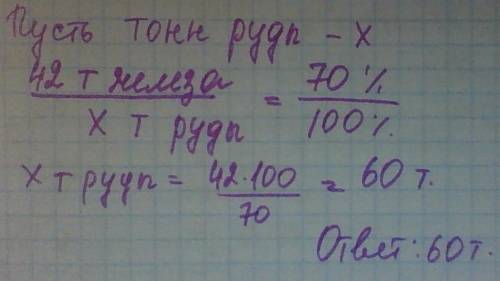 Пусть тонн руды - x
42 т железа / x т руды = 70% / 100%
x т руды = 42·100 / 70 = 60 т.
Ответ: 60 т.